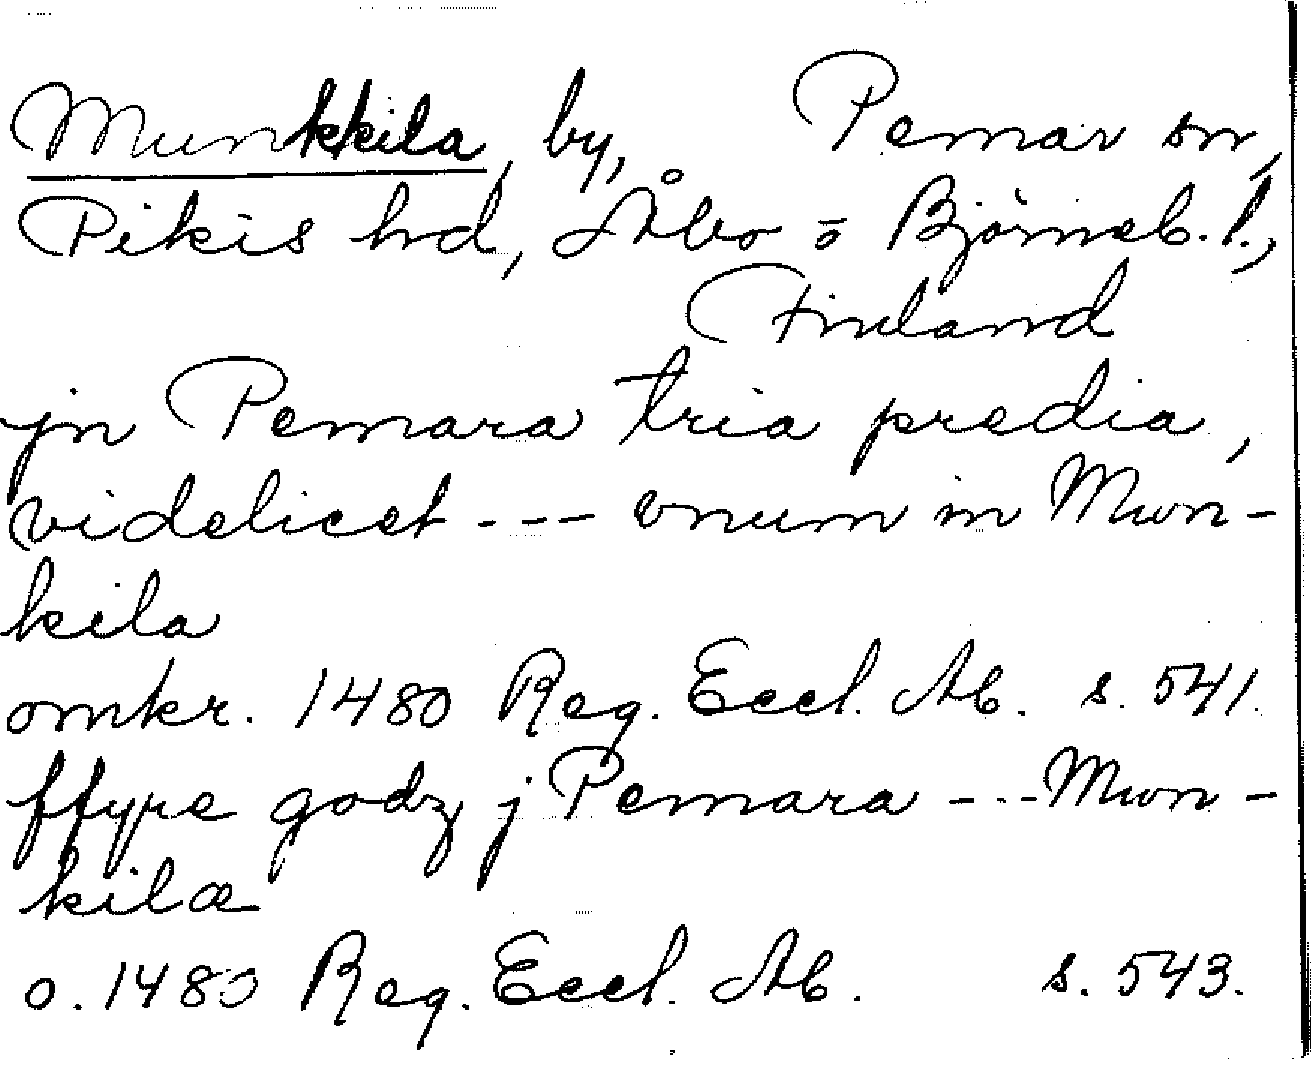 Munkkila, by, Pemar sn,
Pikis hd, Åbo o Björneb. l.,
Finland
jn Pemara tria predia,
videlicet --- vnum in Mwn-
kila
omkr. 1480 Reg. Eccl. Ab. s. 541.
ffyre godz j Pemara --- Mwn-
kilæ
o. 1480 Reg. Eccl. Ab. s. 543.